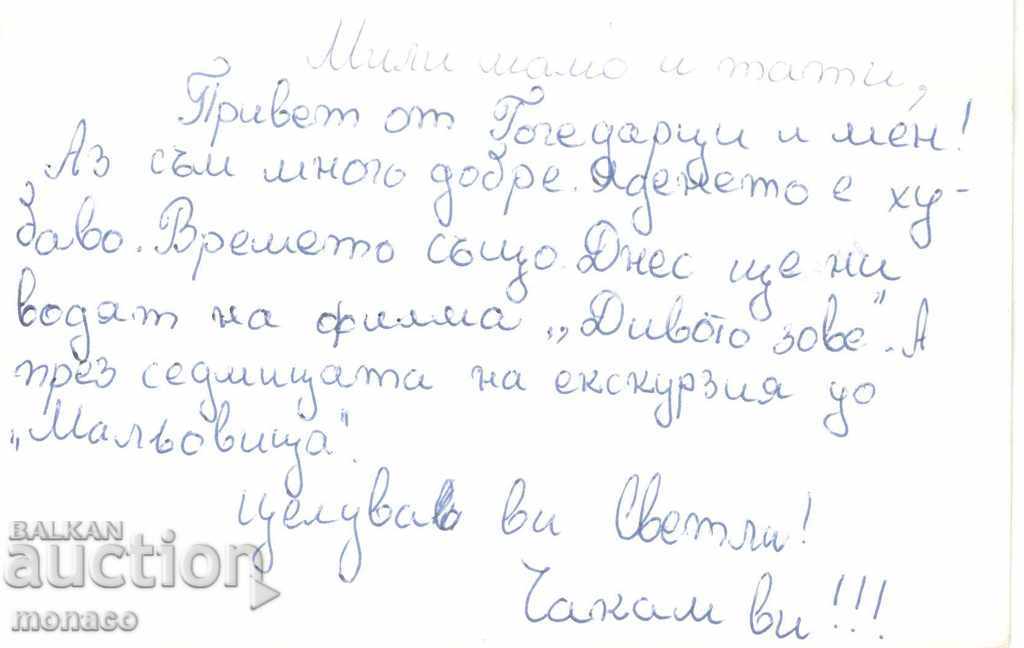 Мили мамо и тати,
Привет от Гогедарци и мен!
Аз съм много добре. Яденето е ху-
баво. Времето също. Днес ще ни
водят на филма „Дивото зове". А
през седмицата на екскурзия до
„Мальовица".
Целува ви Светли!
Чакам ви!!!
BALKAN
auction
monaco